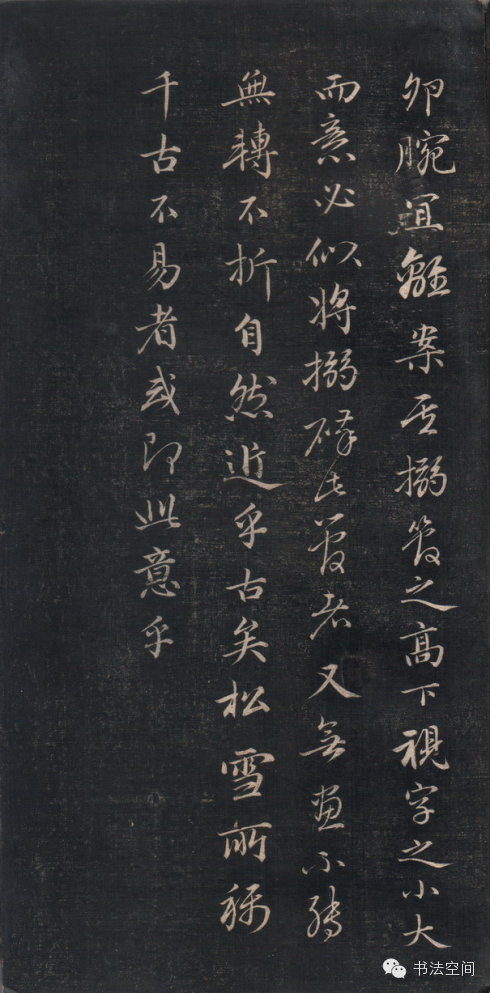 卯腕宜離案至搦管之高下視字之小大
而意必似將搦碎此管者又無畫不轉
無轉不折自然近乎古矣松雪所稱
千古不易者或即此意乎
书法空间